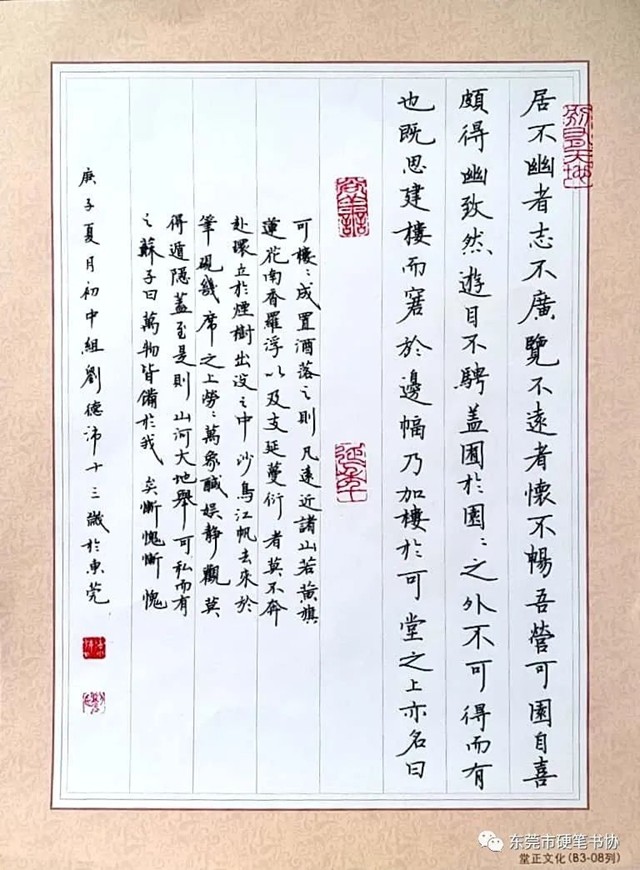 居不幽者志不廣覽不遠者懷不暢吾營可園自喜
頗得幽致然遊目不騁盖囿於園〻之外不可得而有
也既思建樓而窘於邊幅乃加樓於可堂之上亦名曰
可樓〻成置酒落之則凡遠近諸山若黃旗
蓮花南香羅浮以及支延蔓衍者莫不奔
赴環立於煙樹出没之中沙鳥江帆去來於
筆硯幾席之上勞〻萬象鹹娱静觀莫
得遁隱盖至是則山河大地舉可私而有
之蘇子曰萬物皆備於我矣慚愧慚愧
庚子夏月初中組劉德沛十三歲於東莞
别有天地
东莞市硬笔书协
堂正文化(B3-08列)